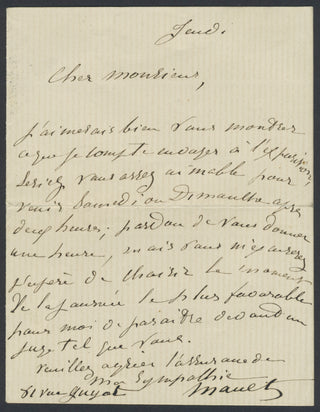 Jeudi
Cher monsieur,
j'aimerais bien vous montrer
ce que je compte envoyer à l'exposition
seriez vous assez aimable pour
venir Samedi ou Dimanche après
deux heures; pardon de vous donner
une heure, mais vous
de choisir le moment
de la journée le plus favorable
pour moi de paraître devant un
juge tel que vous.
veuillez agréer l'assurance de
ma sympathie
81 rue Guyot Manet